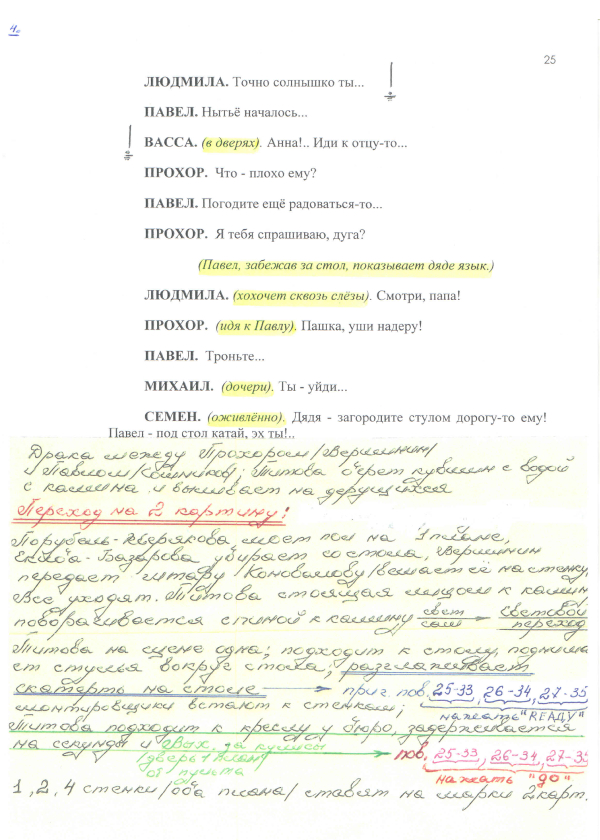 4.
25
ЛЮДМИЛА. Точно солнышко ты...
ПАВЕЛ. Нытьё началось...
ВАССА. (в дверях). Анна!.. Иди к отцу-то...
ПРОХОР. Что - плохо ему?
ПАВЕЛ. Погодите ещё радоваться-то...
ПРОХОР. Я тебя спрашиваю, дуга?
(Павел, забежав за стол, показывает дяде язык.)
ЛЮДМИЛА. (хохочет сквозь слёзы). Смотри, папа!
ПРОХОР. (идя к Павлу). Пашка, уши надеру!
ПАВЕЛ. Троньте...
МИХАИЛ. (дочери). Ты - уйди...
СЕМЕН. (оживлённо). Дядя - загородите стулом дорогу-то ему!
Павел - под стол катай, эх ты!..
Драка между Прохором/Вершинин/
и Павлом/Сошников/; Титова берет кувшин с водой
с камина и выливает на дерущихся
Переход на 2 картину:
Порубель-Зверякова моет пол на 1 плане,
Базарова убирает со стола, Вершинин
передает гитару Коновалову/вешает её на стенку,
Все уходят. Титова стоящая лицом к камин
поворачивается спиной к камину свет световой
сам переход
Титова на сцене одна; подходит к столу, поднима
ет стулья вокруг стола, разглаживает
скатерть на столе приг. пов. 25-33, 26-34, 27-35
монтировщики встают к стенкам; нажать "REАДУ"
Титова подходит к креслу у бюро, задерживается
на секунды и вых. за кулисы пов. 25-33, 26-34, 27-35
/дверь 1 план/ нажать "gо"
от пульта
1, 2, 4 стенки/оба плана/ ставят на марки 2 карт.